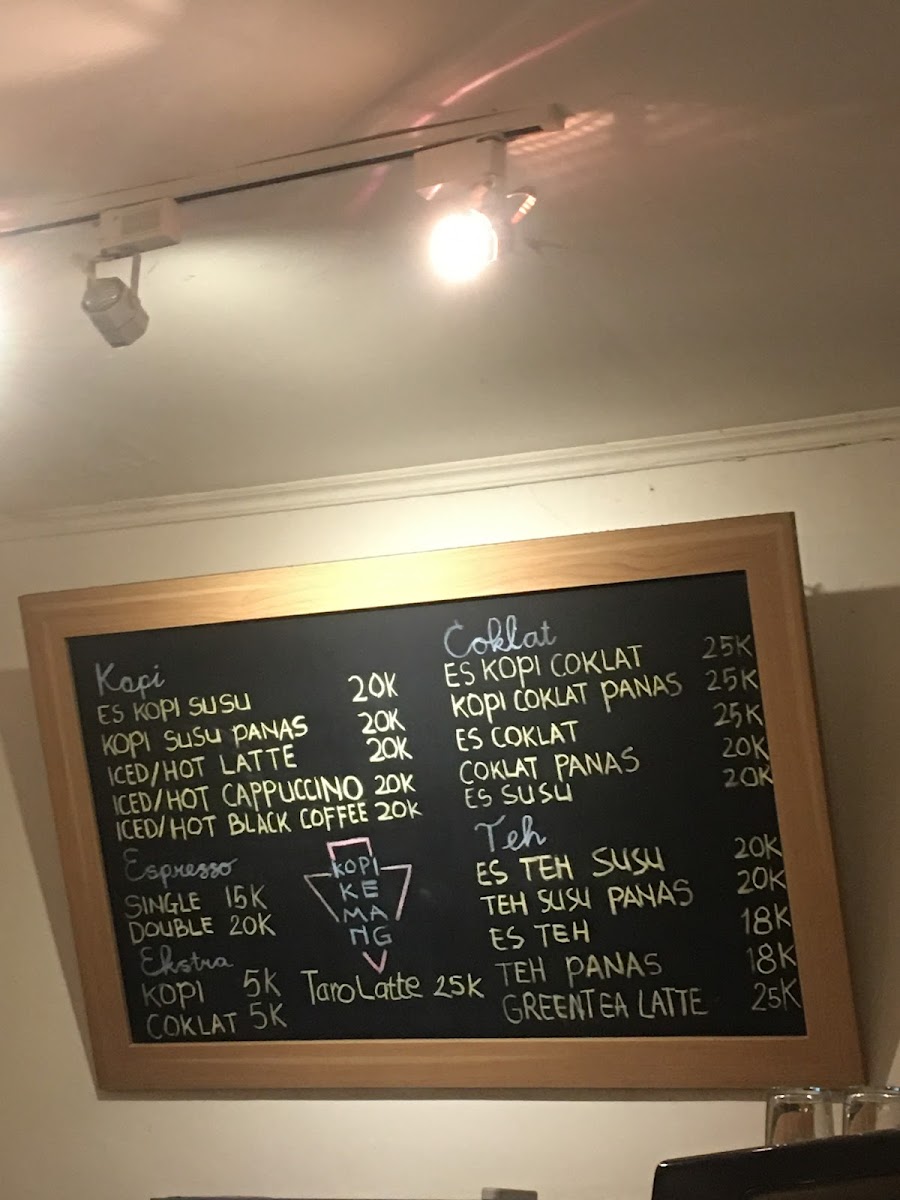 Kopi
ES KOPI SUSU 20K
KOPI SUSU PANAS 20K
ICED/HOT LATTE 20K
ICED/HOT CAPPUCCINO 20K
ICED/HOT BLACK COFFEE 20K
Espresso
SINGLE 15K
DOUBLE 20K
Ekstra
KOPI 5K
COKLAT 5K
KOPI
KE
MA
NG
Taro Latte 25K
Coklat
ES KOPI COKLAT 25K
KOPI COKLAT PANAS 25K
ES COKLAT 25K
COKLAT PANAS 20K
ES SUSU 20K
Teh
ES TEH SUSU 20K
TEH SUSU PANAS 20K
ES TEH 18K
TEH PANAS 18K
GREENTEA LATTE 25K